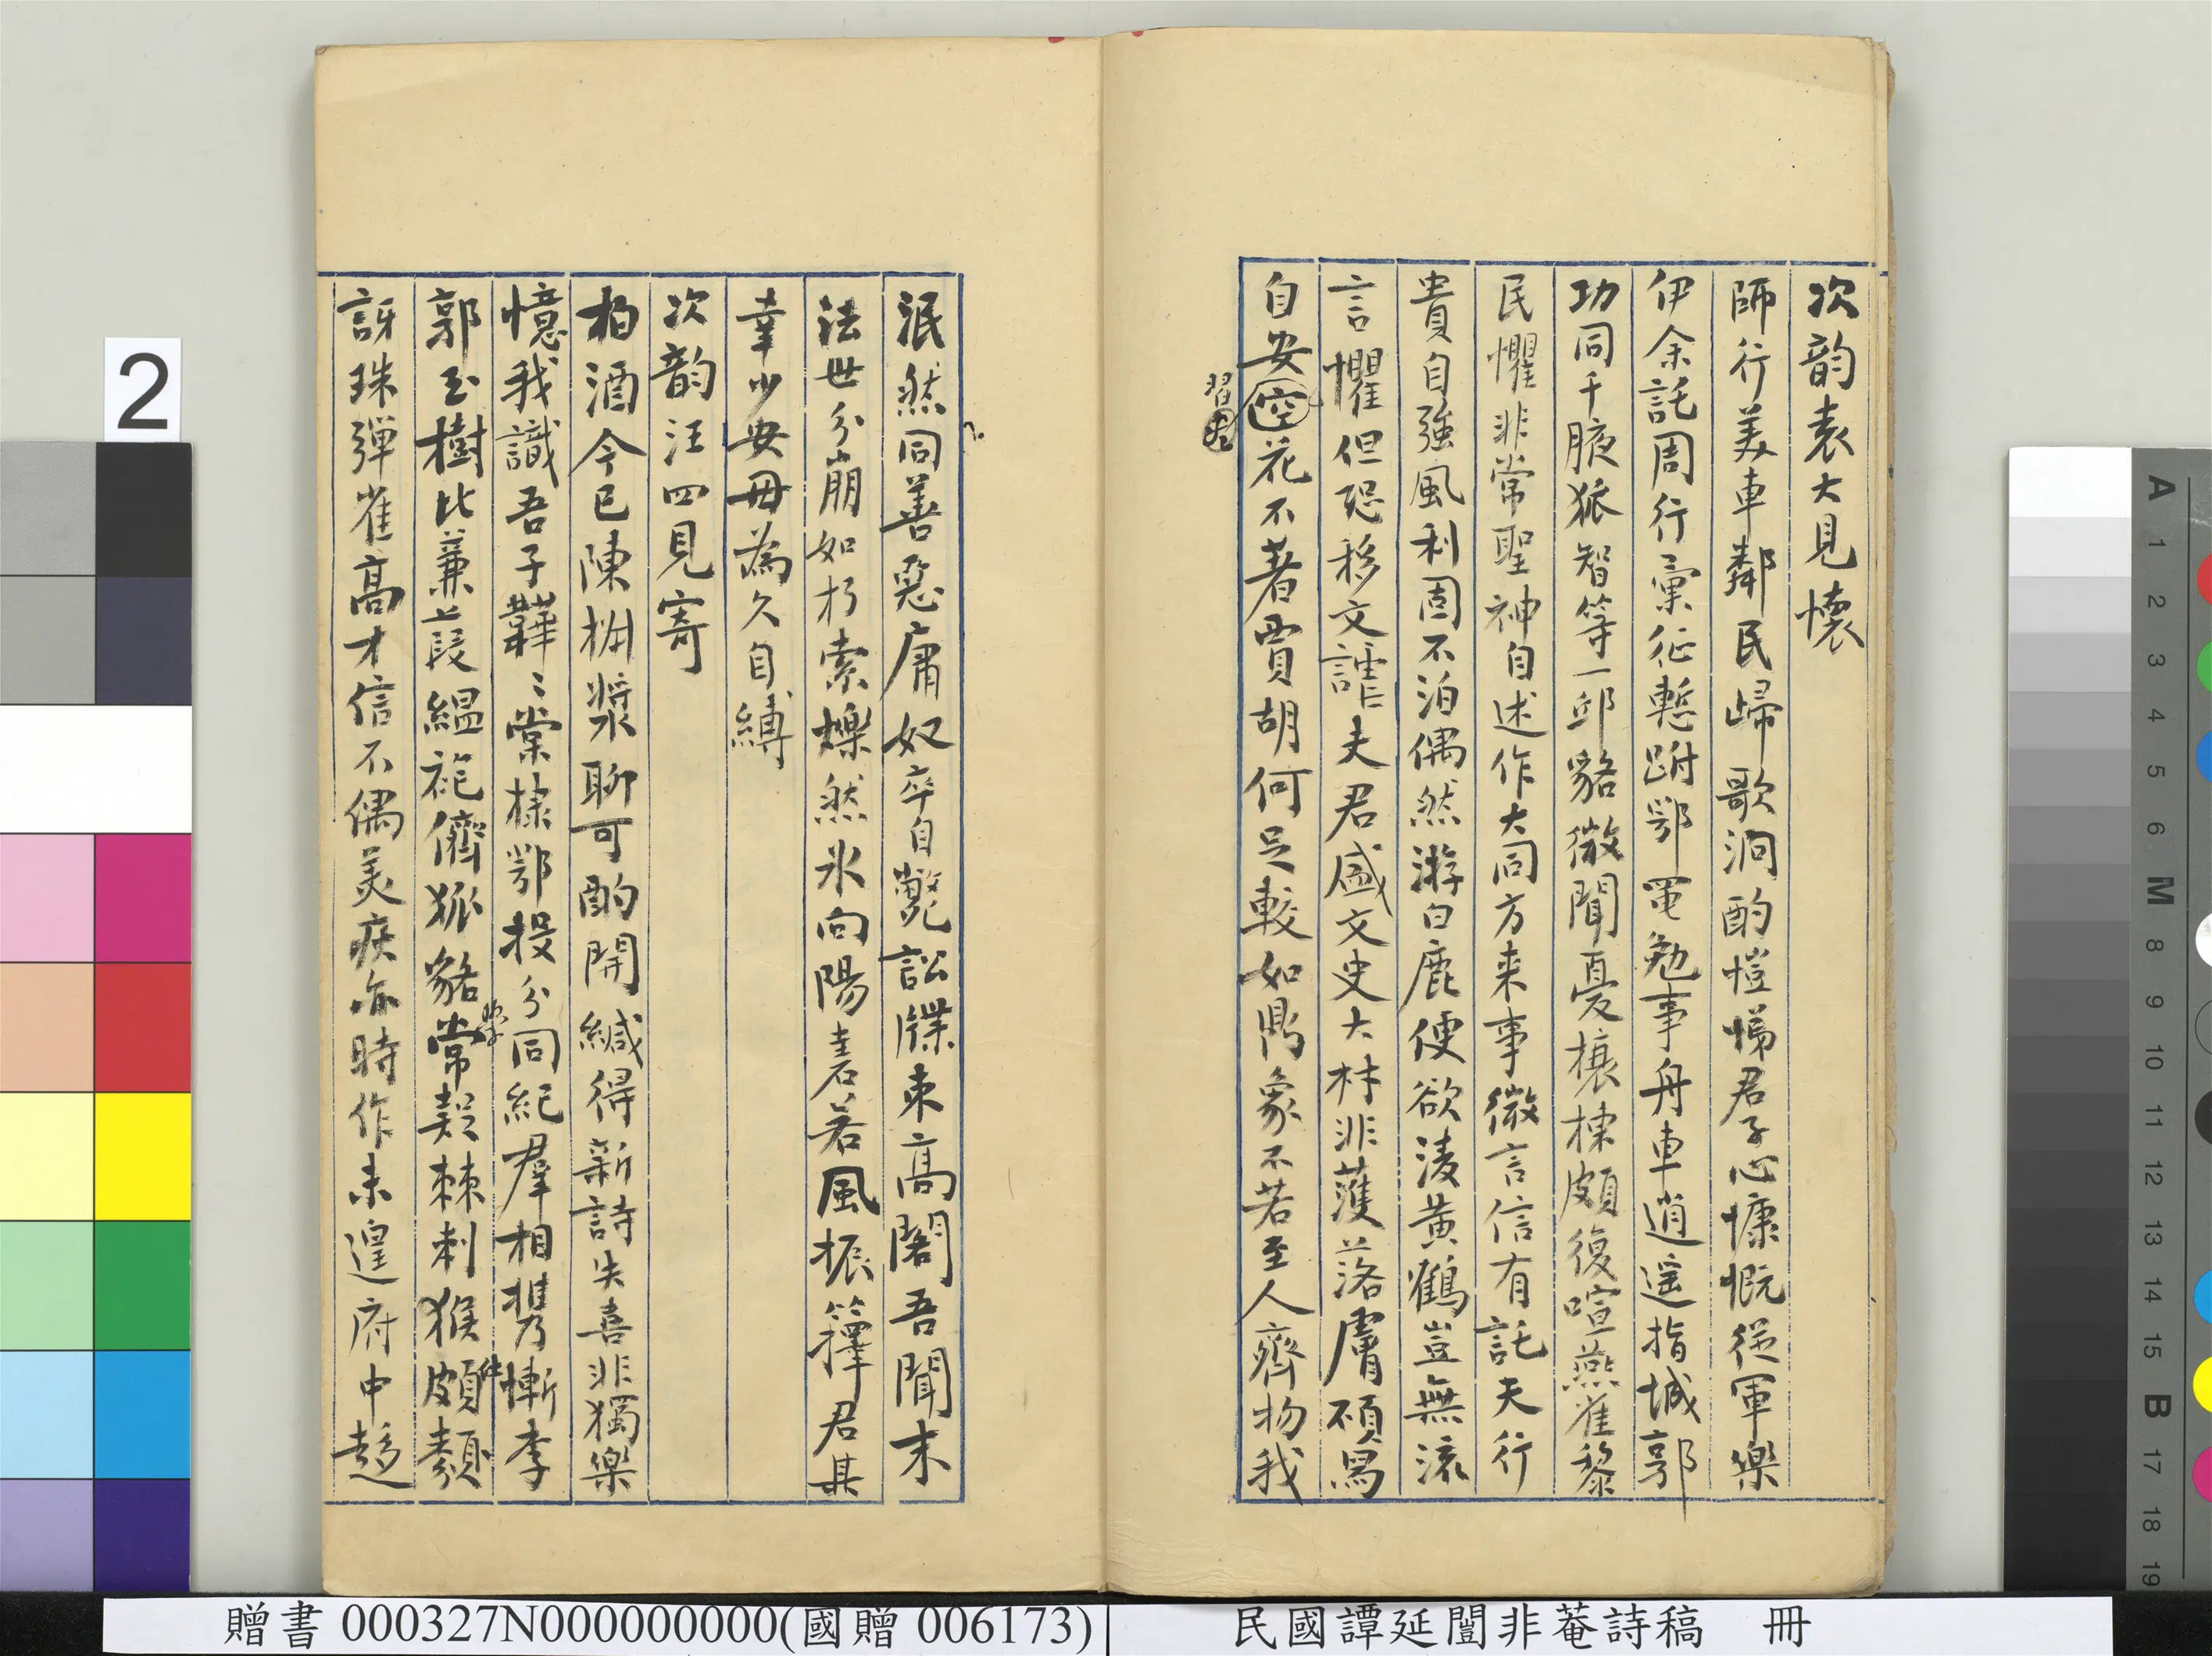 次韵袁大見懷
師行美車鄰民歸歌泂酌愷悌君子心慷慨從軍樂
伊余託周行彙征慙跗鄂黽勉事舟車逍遥指城郭
功同千腋狐智等一邱貉微聞憂榱棟頗復喧燕雀黎
民懼非常聖神自述作大同方來事微言信有託天行
貴自強風利固不泊偶然游白鹿便欲淩黃鶴豈無流
言懼但恐移文謔夫君盛文史大材非濩落膚碩舄
自安空花不著賈胡何足較如鼎象不若至人齊物我
習
泯然同善惡庸奴卒自斃訟牒束高閣吾聞末
法世分崩如朽索爍然氷向陽砉若風振籜君其
幸少安毋為久自縛
次韵汪四見寄
柏酒今已陳椒漿聊可酌開緘得新詩失喜非獨樂
憶我識吾子韡〻棠棣鄂投分同紀羣相携慚李
郭玉樹比蒹葭緼袍儕狐貉常疑棘刺猴頗類
訝珠彈雀高才信不偶美疢亦時作未遑府中趍
2
A 1 2 3 4 5 6 M 8 9 10 11 12 13 14 15 B 17 18 19
贈書 000327N000000000(國贈 006173)
民國譚延闓非菴詩稿 冊